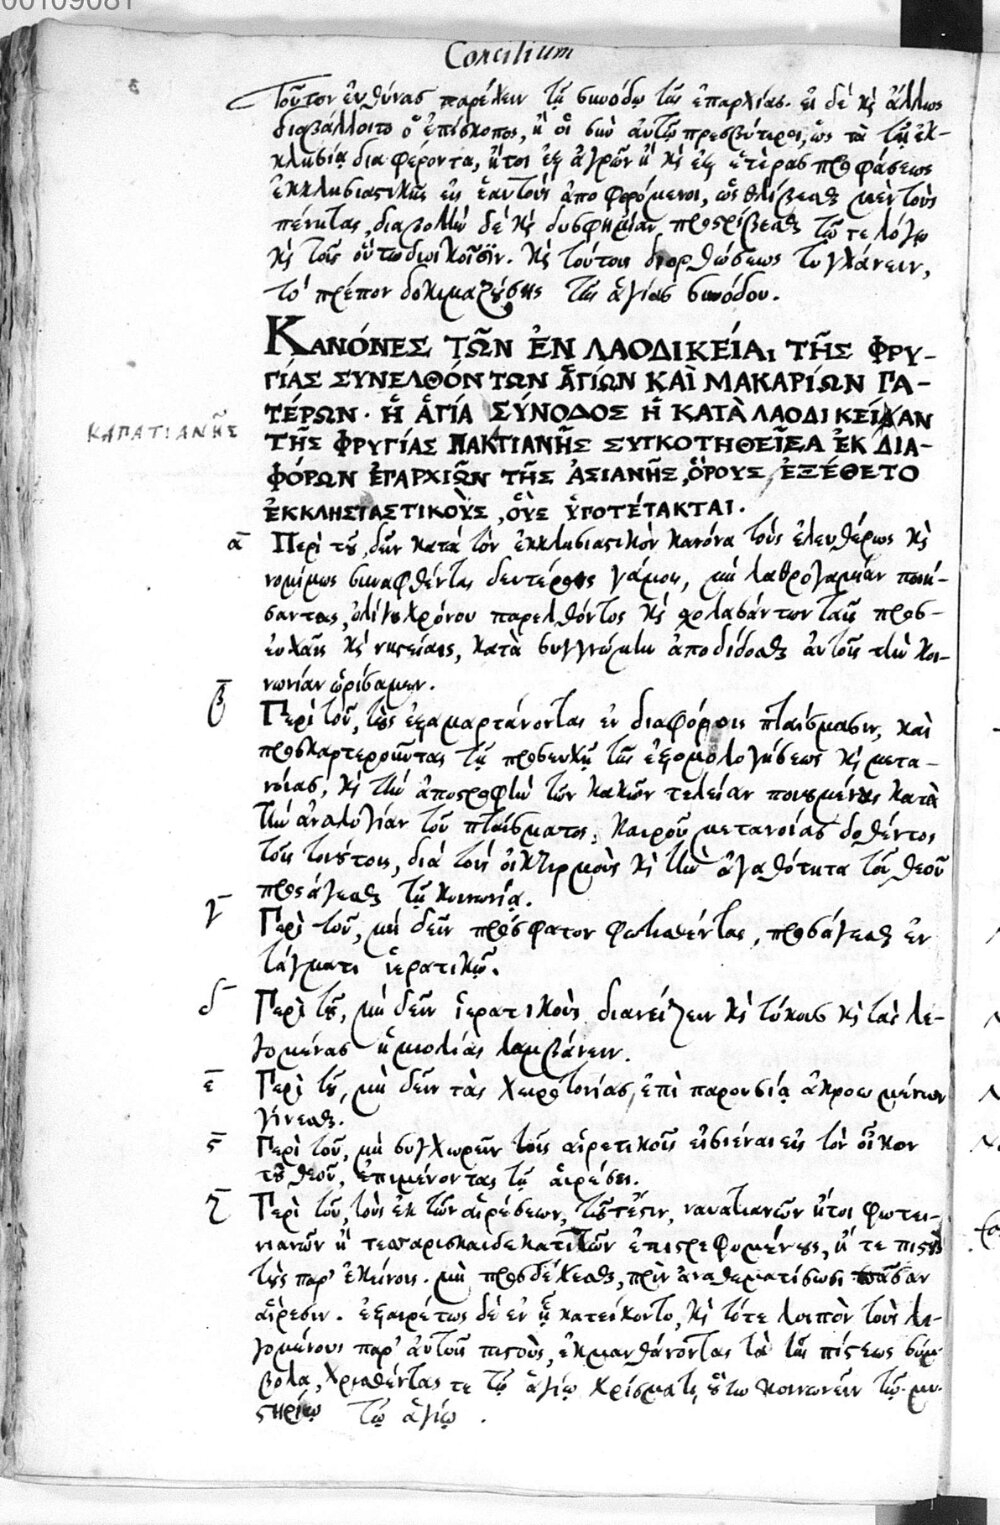 00109081
Concilium
τοῦτον εὐθύνας παρέχειν τῇ συνόδῳ τῆς ἐπαρχίας. εἰ δέ κỳ ἄλλως
διαβάλλοιτο ὁ ἐπίσκοπος, ἢ οἱ σὺν αὐτῷ πρεσβύτεροι, ὡς τὰ τῇ ἐκ-
κλησίᾳ διαφέροντα, ἤτοι ἐξ ἀγρῶν ἢ κỳ ἐξ ἑτέρας προφάσεως
ἐκκλησιαστικῆς εἰς ἑαυτοὺς ἀποφερόμενοι, ὡς θλίβεσθαι μὲν τοὺς
πένητας, διαβολὴν δὲ κỳ δυσφημίαν προστρίβεσθαι τῷ τε λόγῳ
κỳ τοῖς οὕτω διοικοῦσιν. κỳ τούτους διορθώσεως τυγχάνειν,
τὸ πρέπον δοκιμαζούσης τῆς ἁγίας συνόδου.
ΚΑΝΌΝΕΣ ΤΩ͂Ν ἘΝ ΛΑΟΔΙΚΕΊΑι ΤΗ͂Σ ΦΡΥ-
ΓΊΑΣ ΣΥΝΕΛΘΌΝΤΩΝ ἉΓΊΩΝ ΚΑῚ ΜΑΚΑΡΊΩΝ ΠΑ-
ΤΈΡΩΝ. Ἡ ἉΓΊΑ ΣΎΝΟΔΟΣ Ἡ ΚΑΤᾺ ΛΑΟΔΙΚΕΊΑΝ
ΤΗ͂Σ ΦΡΥΓΊΑΣ ΠΑΚΤΙΑΝΗ͂Σ ΣΥΓΚΟΤΗΘΕΙ͂ΣΑ ἘΚ ΔΙΑ-
ΚΑΠΑΤΙΑΝΗ͂Σ
ΦΌΡΩΝ ἘΠΑΡΧΙΩ͂Ν ΤΗ͂Σ ἈΣΙΑΝΗ͂Σ, ὍΡΟΥΣ ἘΞΈΘΕΤΟ
ἘΚΚΛΗΣΙΑΣΤΙΚΟῪΣ, ΟὛΣ ὙΠΟΤΈΤΑΚΤΑΙ.
α Περὶ τοῦ, δεῖν κατὰ τὸν ἐκκλησιαστικὸν κανόνα τοὺς ἐλευθέρως κỳ
νομίμως συναφθέντας δευτέροις γάμοις, μὴ λαθρογαμίαν ποιή-
σαντας, ὀλίγου χρόνου παρελθόντος κỳ σχολασάντων ταῖς προσ-
ευχαῖς κỳ νηστείαις, κατὰ συγγνώμην ἀποδίδοσθαι αὐτοῖς τὴν κοι-
νωνίαν ὡρίσαμεν.
β Περὶ τοῦ, τοὺς ἐξαμαρτάνοντας ἐν διαφόροις πταίσμασιν, καὶ
προσκαρτεροῦντας τῇ προσευχῇ τῆς ἐξομολογήσεως κỳ μετα-
νοίας, κỳ τὴν ἀποστροφὴν τῶν κακῶν τελείαν ποιουμένους κατὰ
τὴν ἀναλογίαν τοῦ πταίσματος, καιροῦ μετανοίας δοθέντος
τοῖς τοιούτοις, διὰ τοὺς οἰκτιρμοὺς κỳ τὴν ἀγαθότητα τοῦ θεοῦ
προσάγεσθαι τῇ κοινωνίᾳ.
γ Περὶ τοῦ, μὴ δεῖν πρόσφατον φωτισθέντας, προσάγεσθαι ἐν
τάγματι ἱερατικῷ.
δ Περὶ τοῦ, μὴ δεῖν ἱερατικοὺς διανείζειν κỳ τόκους κỳ τὰς λε-
γομένας ἡμιολίας λαμβάνειν.
ε Περὶ τοῦ, μὴ δεῖν τὰς χειροτονίας, ἐπὶ παρουσίᾳ ἀκροωμένων
γίνεσθαι.
ς Περὶ τοῦ, μὴ συγχωρεῖν τοῖς αἱρετικοῖς εἰσιέναι εἰς τὸν οἶκον
τοῦ θεοῦ, ἐπιμένοντας τῇ αἱρέσει.
ζ Περὶ τοῦ, τοὺς ἐκ τῶν αἱρέσεων, τοῦτέστιν, ναυατιανῶν ἤτοι φωτει-
νιανῶν ἢ τεσσαρισκαιδεκατιτῶν ἐπιστρεφομένους, ἤ τε πιστοὺς
τοὺς παρ’ ἐκείνοις. μὴ προσδέχεσθαι, πρὶν ἀναθεματίσωσι πᾶσαν
αἵρεσιν. ἐξαιρέτως δὲ ἐν ᾗ κατείχοντο, κỳ τότε λοιπὸν τοὺς λε-
γομένους παρ’ αὐτοῖς πιστοὺς, ἐκμανθάνοντας τὰ τῆς πίστεως σύμ-
βολα, χρισθέντας τε τῷ ἁγίῳ χρίσματι, οὕτω κοινωνεῖν τῷ μυ-
στηρίῳ τῷ ἁγίῳ.